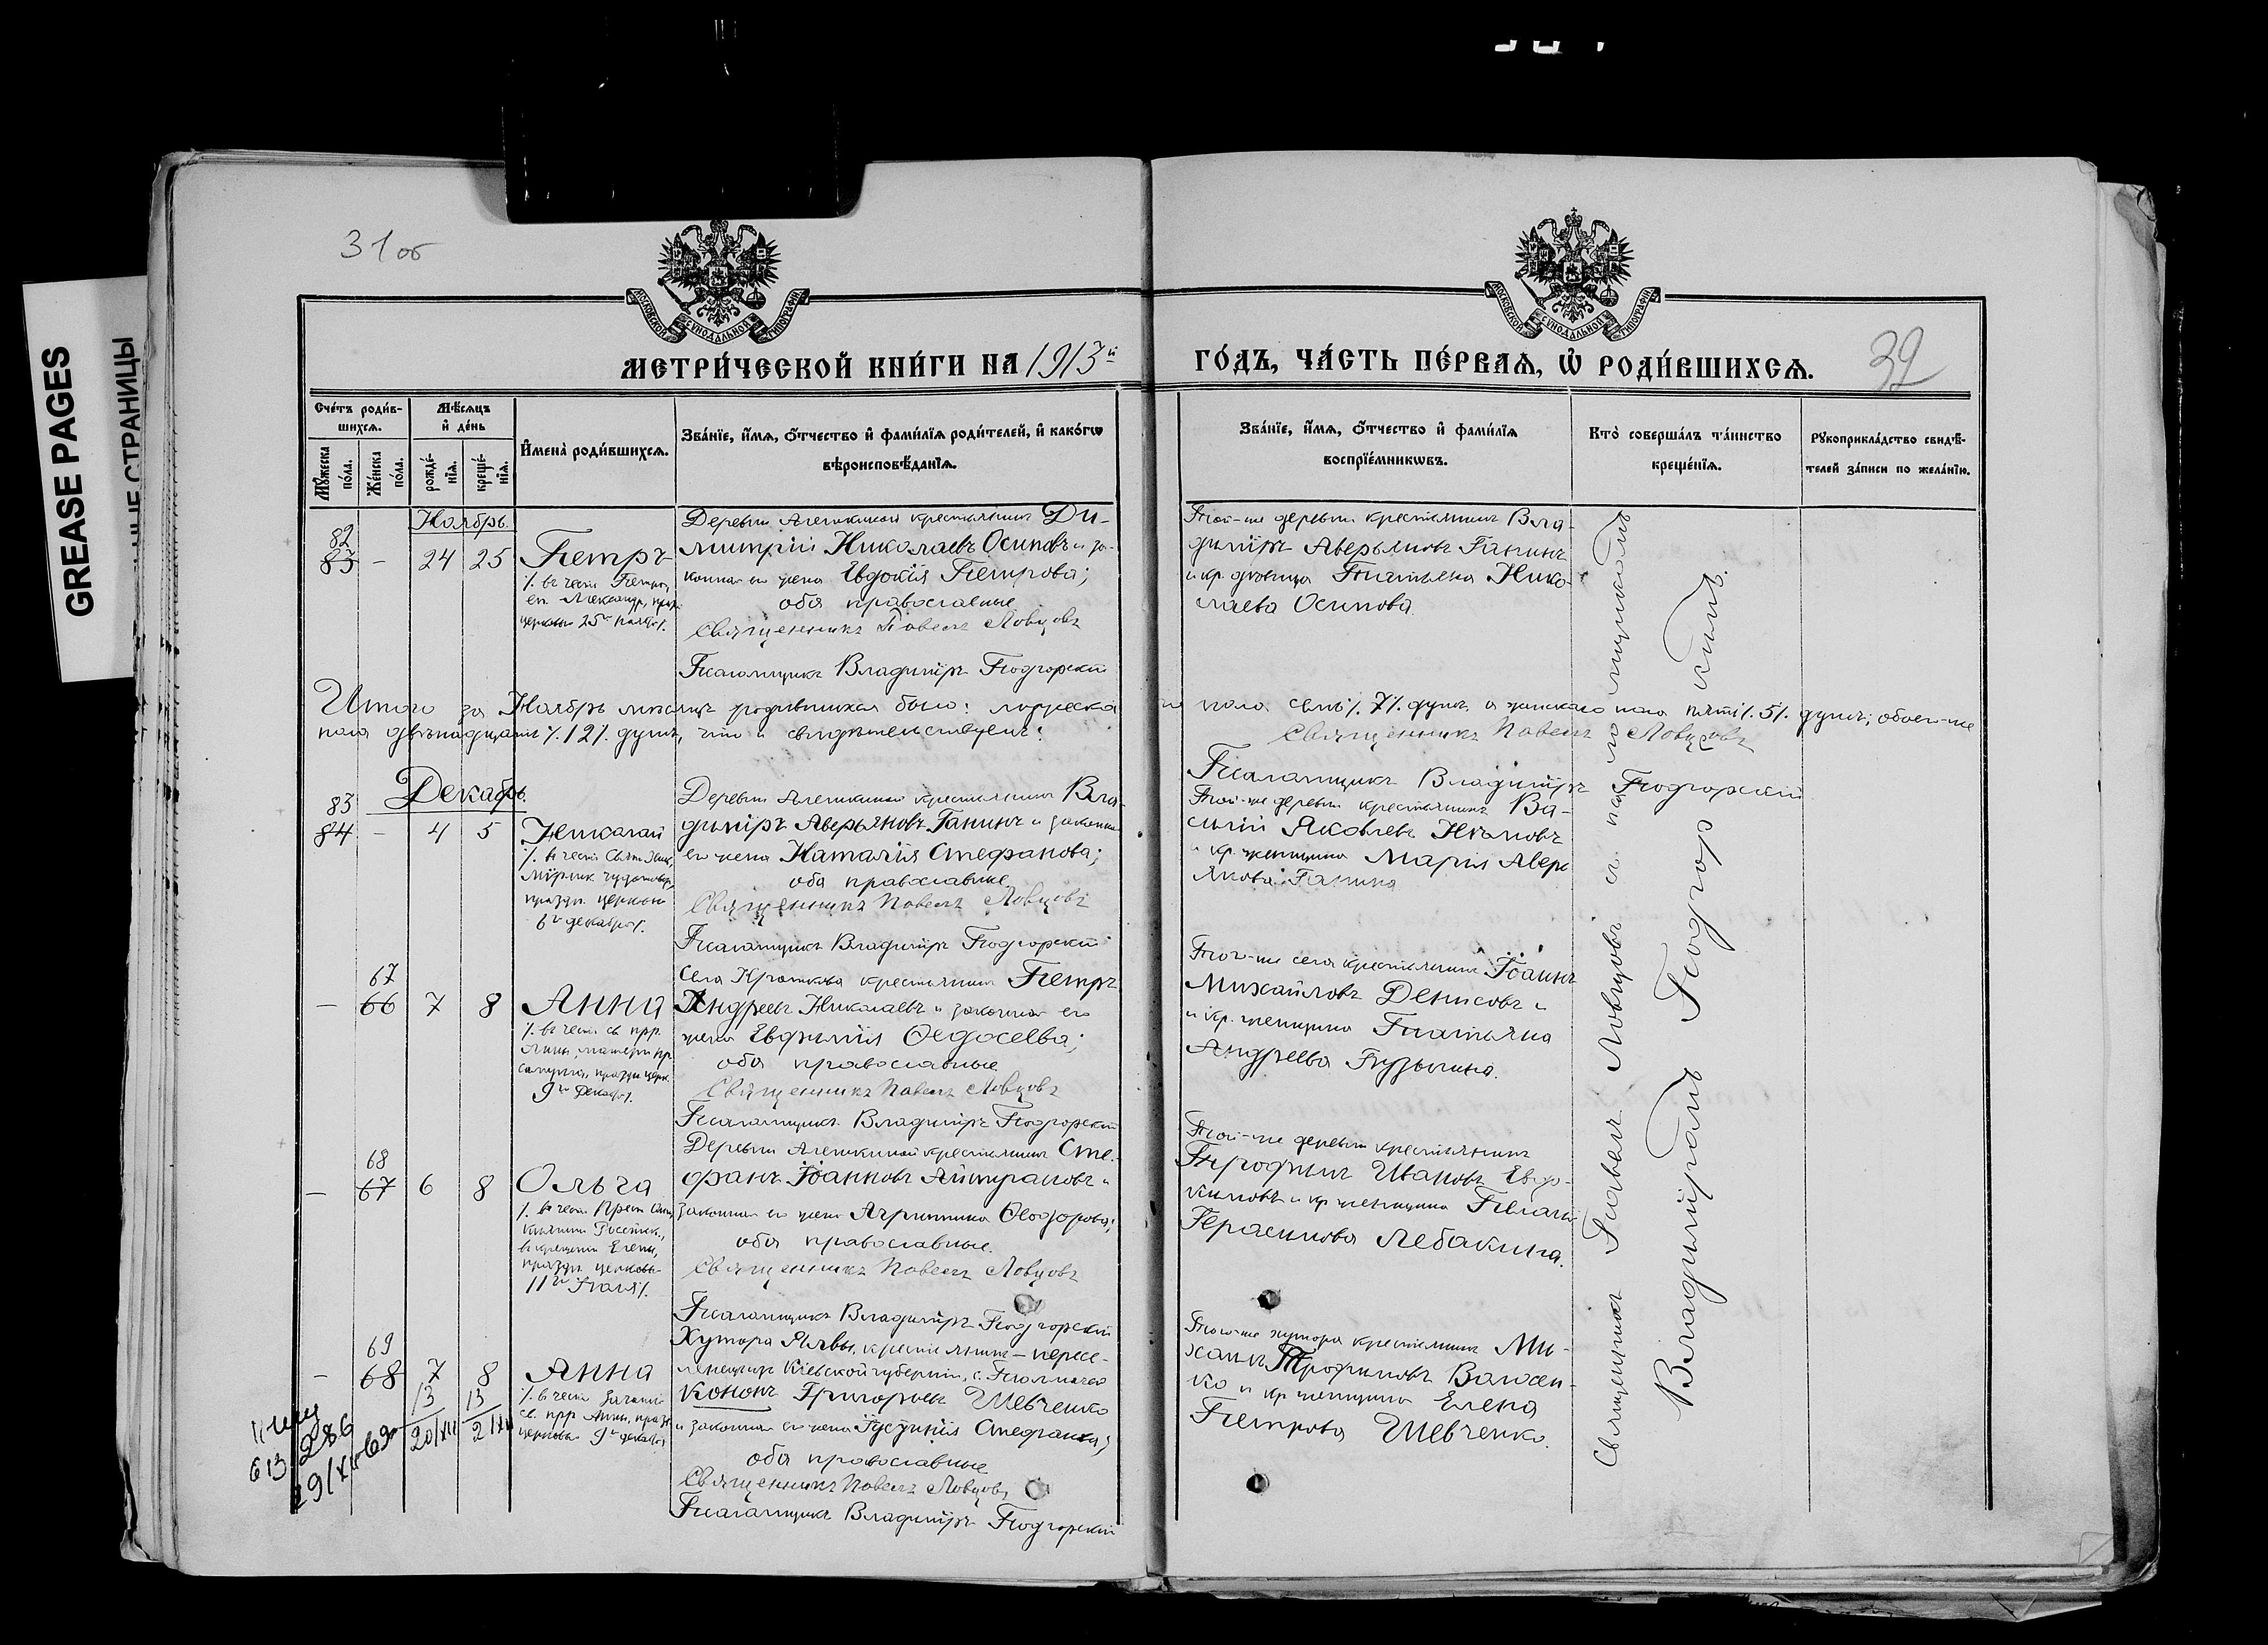 GREASE PAGES
31 об
МОСКОВСКОЙ СУНОДАЛЬНОЙ ТИПОГРАФІИ
МОСКОВСКОЙ СУНОДАЛЬНОЙ ТИПОГРАФІИ
МЕТРИ́ЧЕСКОЙ КНИ́ГИ НА 1913й ГО́ДЪ, ЧА́СТЬ ПЕ́РВАѦ, Ѡ РОДИ́ВШИХСѦ.
32
Сче́тъ роди́в-
шихсѧ.
Мѣ́сяцъ
и҆ де́нь
Мꙋ́жеска по́ла.
Же́нска по́ла.
рожде́-нїѧ.
креще́-нїѧ.
И҆мена̀ роди́вшихсѧ.
Зва́нїе, и҆́мѧ, ѻ҆́тчество и҆ фами́лїѧ роди́телей, и҆ како́гѡ
вѣроисповѣ́данїѧ.
Зва́нїе, и҆́мѧ, ѻ҆́тчество и҆ фами́лїѧ
воспрїе́мникѡвъ.
Кто̀ соверша́лъ та́инство
креще́нїѧ.
Рꙋкоприкла́дство свидѣ́-
телей за́писи по жела́нїю.
Ноябрь.
82
83 - 24 25 Петръ
/. въ честь Петра,
еп. Александр., празд.
церковью 25го ноября/.
Деревни Алешкиной крестьянинъ Ди-
митрій Николаевъ Осиповъ и за-
конная его жена Евдокія Петрова;
оба православные
Священникъ Павелъ Ловцовъ
Псаломщикъ Владиміръ Подгорскій
Той-же деревни крестьянинъ Вла-
диміръ Аверьяновъ Ганинъ
и кр. девица Татьяна Нико-
лаева Осипова.
Итого за Ноябрь месяцъ родившихся было: мужеска го пола семь /.7/. душъ, а женскаго пола пять /.5/. душъ; обоего-же
пола двенадцать /.12/. душъ, что и свидетельствуемъ:
Священникъ Павелъ Ловцовъ
Псаломщикъ Владиміръ Подгорскій
Декабрь.
83
84 - 4 5 Николай
/. въ честь Свят. Ник.
Мирлик. чудотвор.,
праздн. церковью
6го декабря/.
Деревни Алешкиной крестьянинъ Вла-
диміръ Аверьяновъ Ганинъ и законная
его жена Наталія Стефанова;
оба православные
Священникъ Павелъ Ловцовъ
Псаломщикъ Владиміръ Подгорскій
Той-же деревни крестьянинъ Ва-
силій Яковлевъ
и кр. женщина Марія Аверь
янова Ганина
67
- 66 7 8 Анна
/. въ честь св. прр.
Анны, матери пр.
Самуила, праздн. церк.
9го Декабря/.
Села Кроткова крестьянинъ Петръ
Андреевъ Николаевъ и законная его
жена Евфимія Ѳедосеева;
оба православные
Священникъ Павелъ Ловцовъ
Псаломщикъ Владиміръ Подгорскій
Того-же села крестьянинъ Іоаннъ
Михайловъ Денисовъ и
и кр. женщина Татьяна
Андреева Пузыгина.
68
- 67 6 8 Ольга
княгини Россійск.,
въ крещеніи Елены,
праздн. церковью
11го Іюля/.
Деревни Алешкиной крестьянинъ Сте-
фанъ Іоанновъ и
законная его жена Агриппина Ѳеодорова;
оба православные.
Священникъ Павелъ Ловцовъ
Псаломщикъ Владиміръ Подгорскій
Той-же деревни крестьянинъ
Трофимъ Ивановъ Евдо-
кимовъ и кр. женщина
Герасимова Лебакина.
69
- 68 7 8 Анна
/. въ честь Зачатія
св. прр. Анны, празд.
церковью 9го декабря/.
Хутора крестьянинъ - пересе-
ленецъ Кіевской губерніи, с.
Кононъ Григорьевъ Шевченко
и законная его жена Іустинія Стефанова;
оба православные
Священникъ Павелъ Ловцовъ
Псаломщикъ Владиміръ Подгорскій
Того-же хутора крестьянинъ Ми-
хаилъ Трофимовъ Волошен-
ко и кр. женщина Елена
Петрова Шевченко.
Священникъ Павелъ Ловцовъ съ псаломщикомъ
Владиміромъ Подгорскимъ.